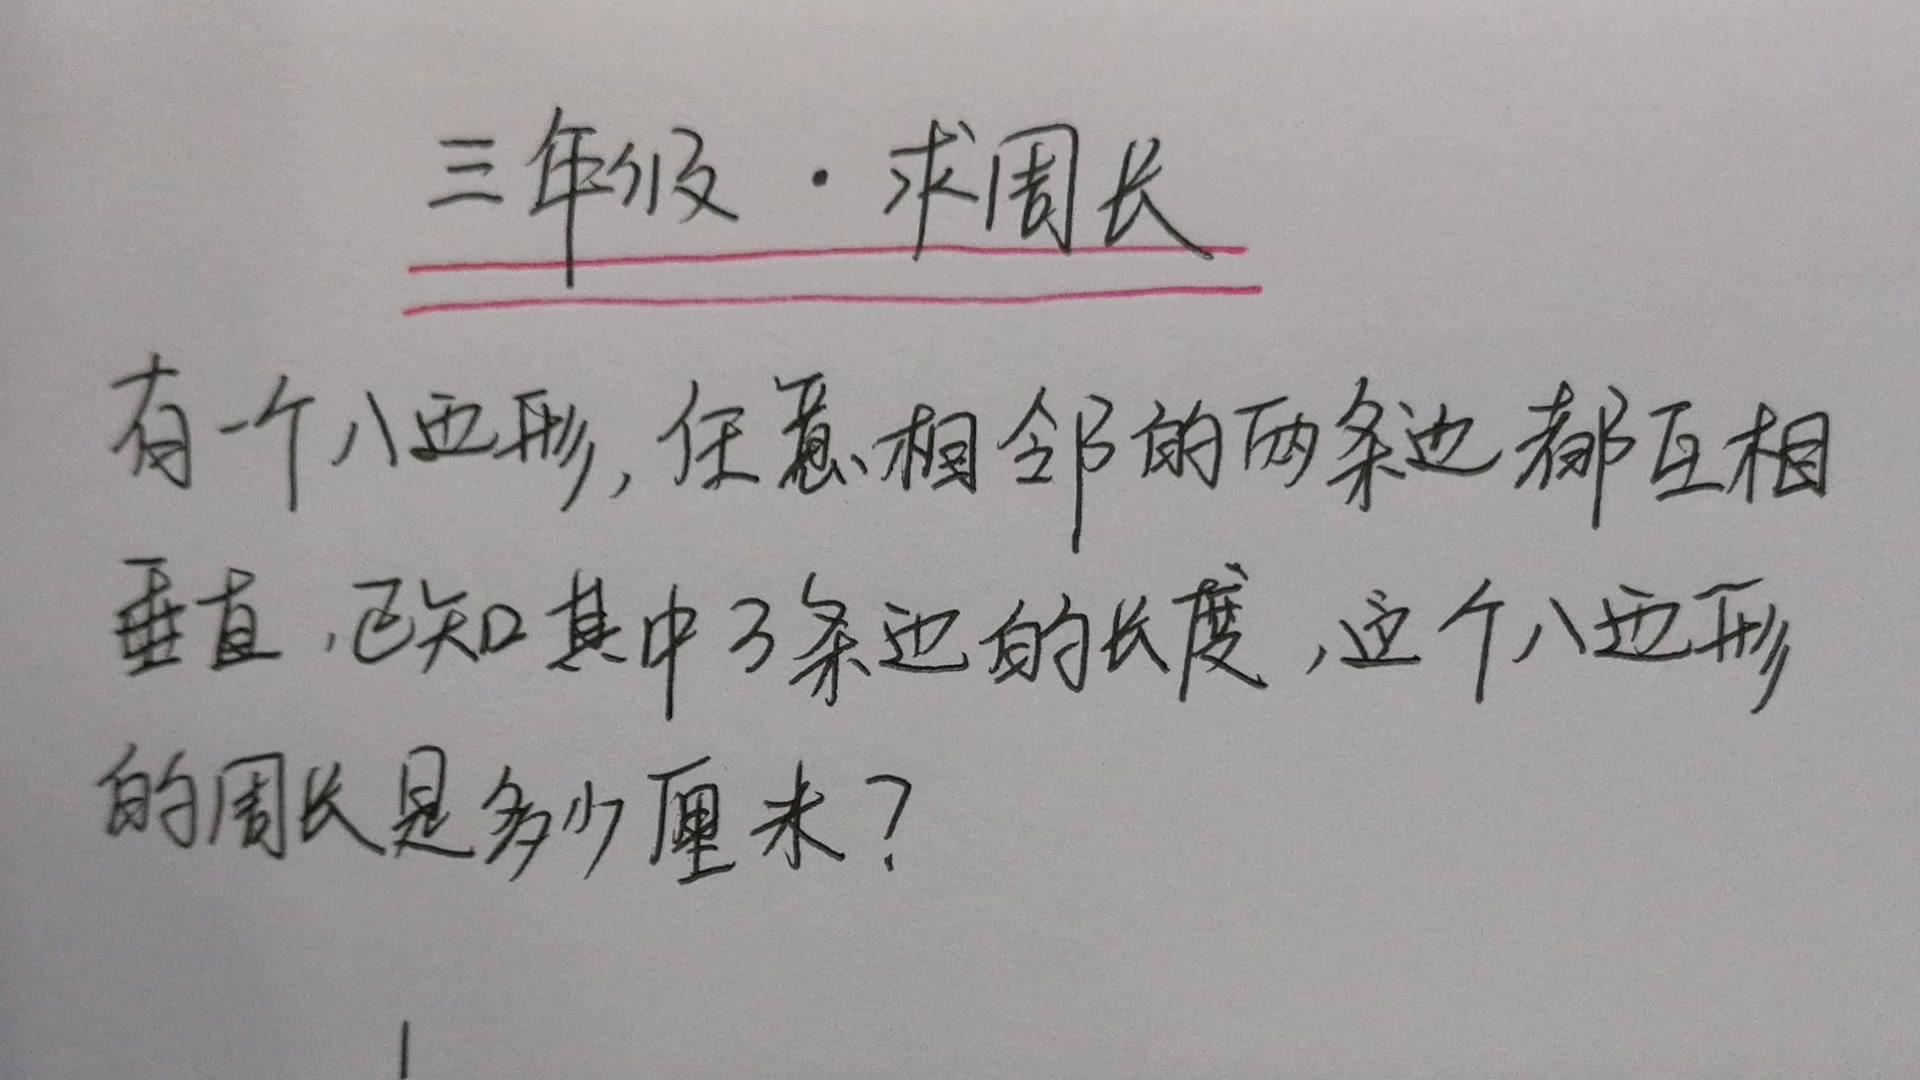 三年级·求周长
有一个八边形,任意相邻的两条边都互相
垂直,已知其中3条边的长度,这个八边形
的周长是多少厘米?